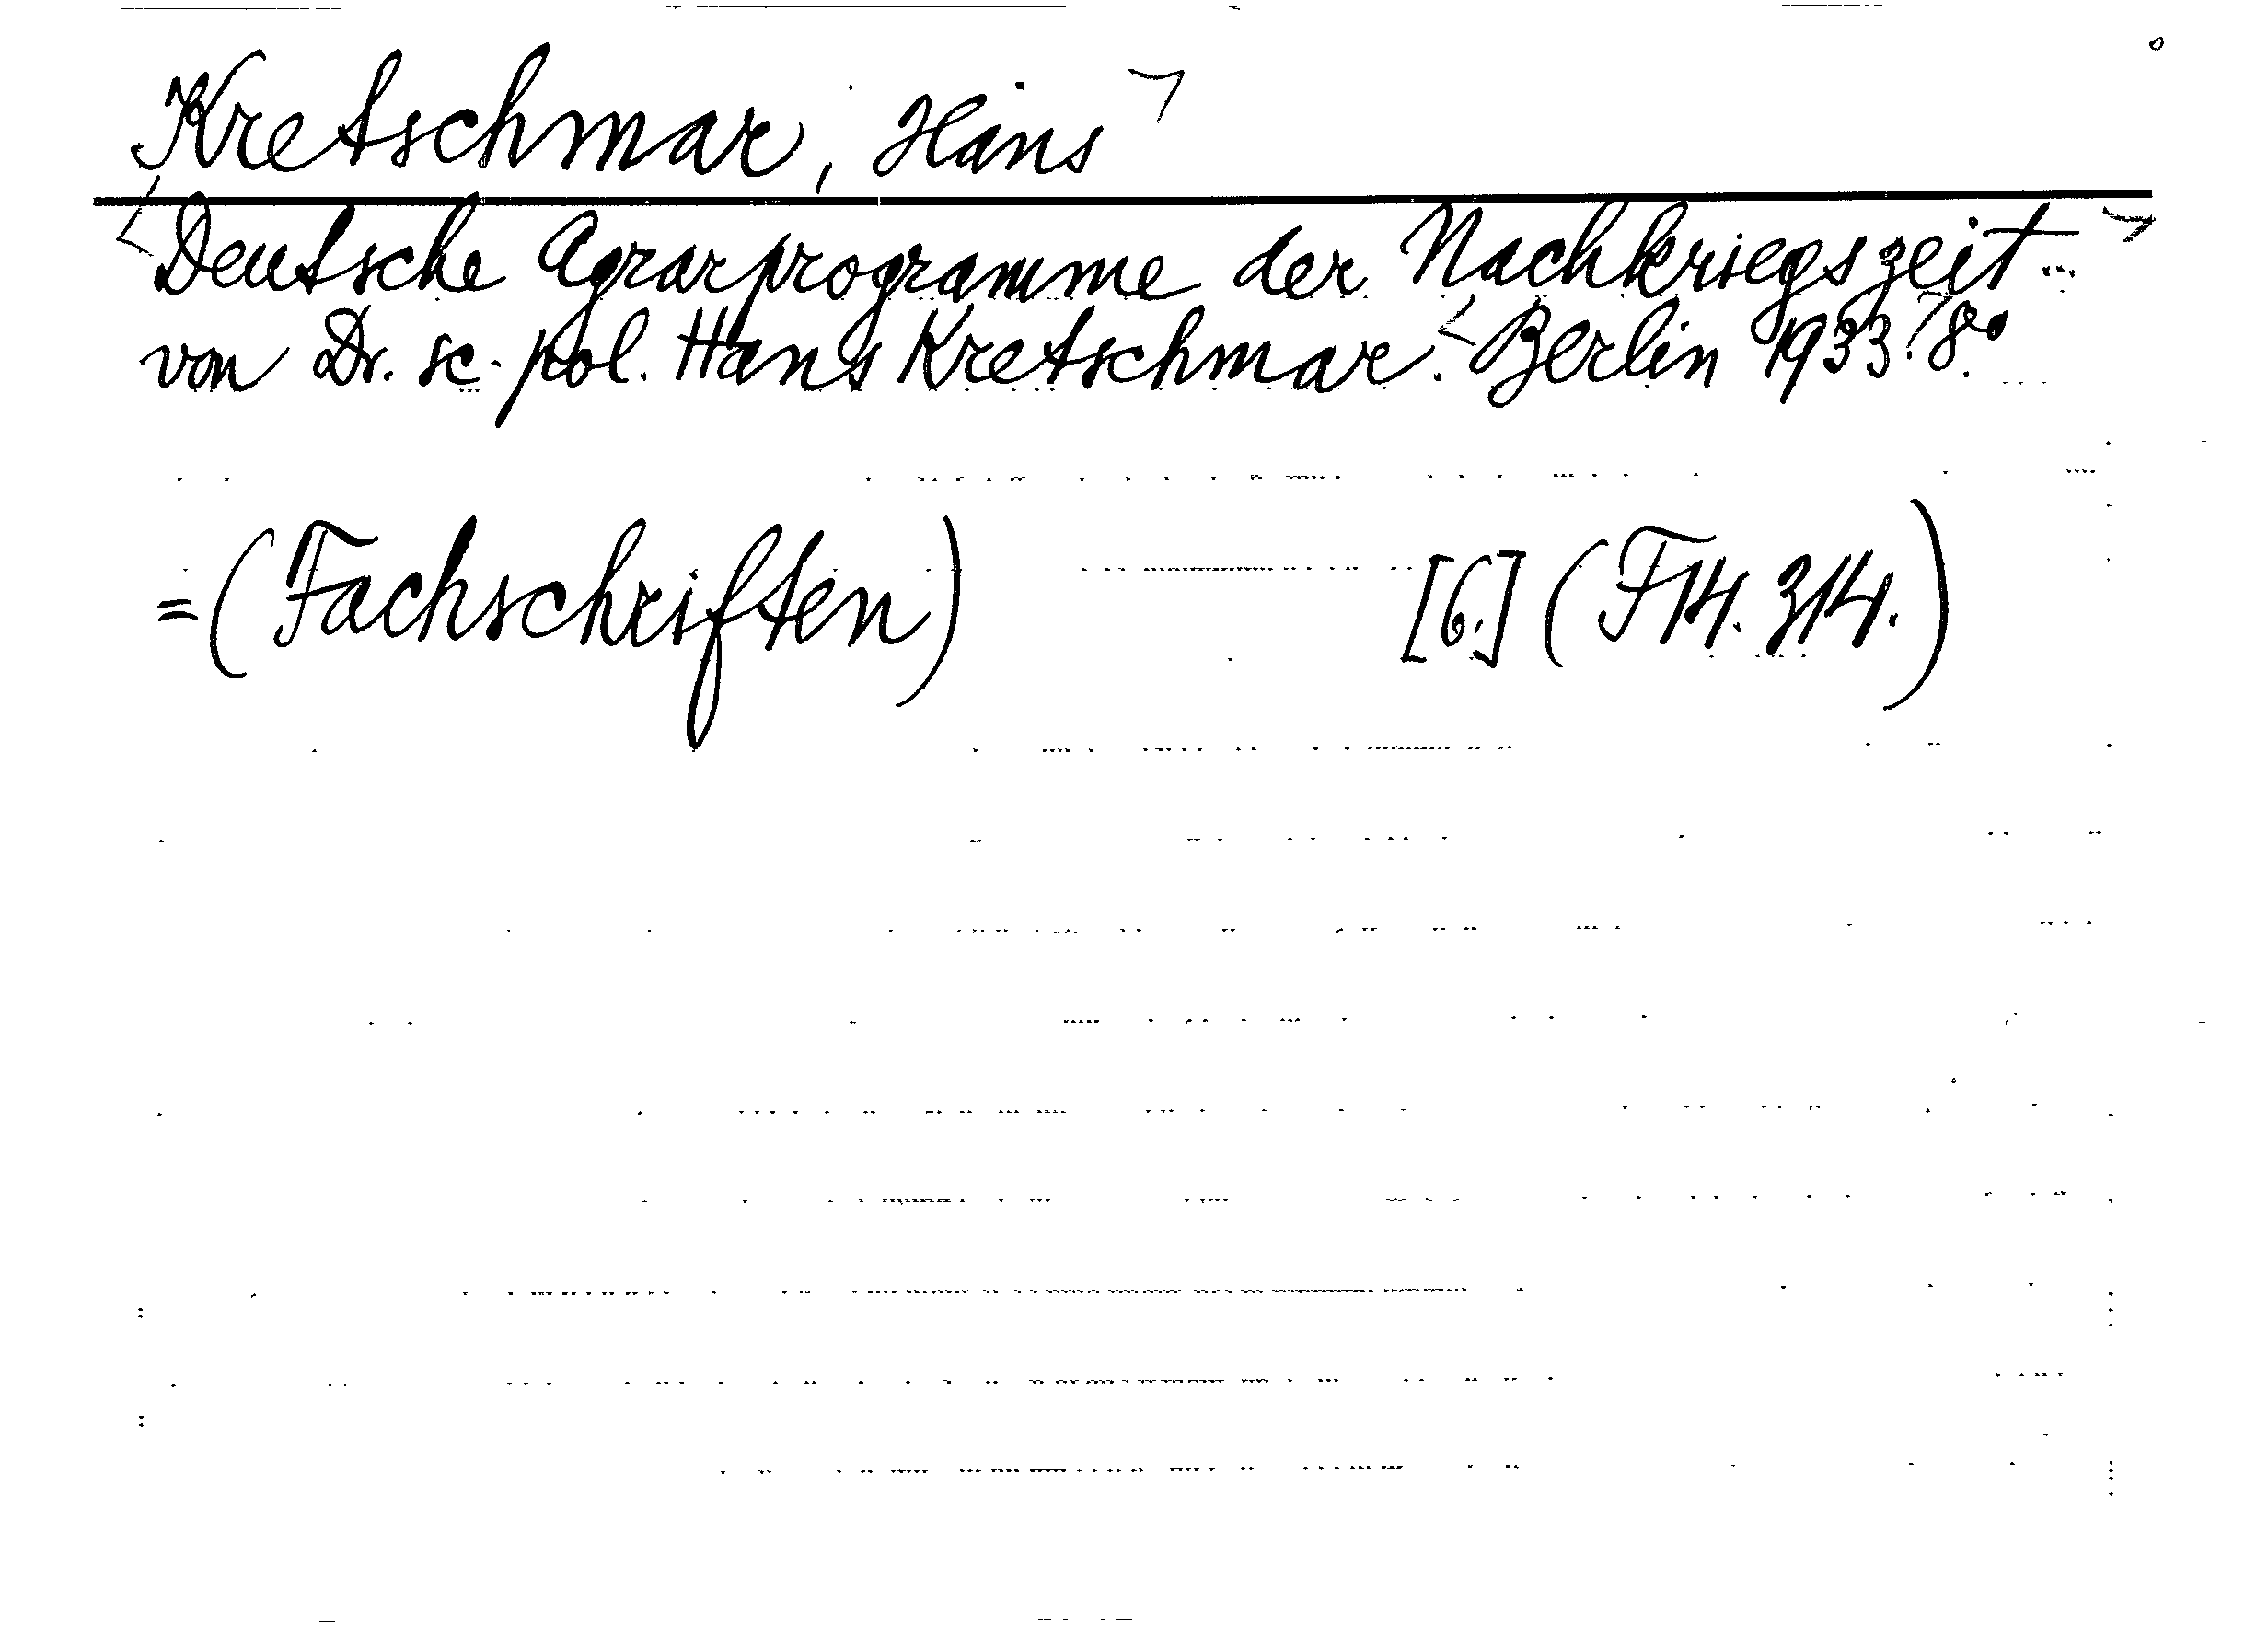 Kretschmar, Hans
Deutsche Agrarprogramme der Nachkriegszeit
von Dr. sc. pol. Hans Kretschmar. Berlin 1933. 8°.
=(Fachschriften) [6.] (F14. 314.)